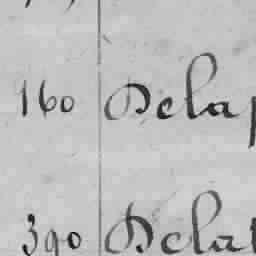 160 Delap
390 Delat